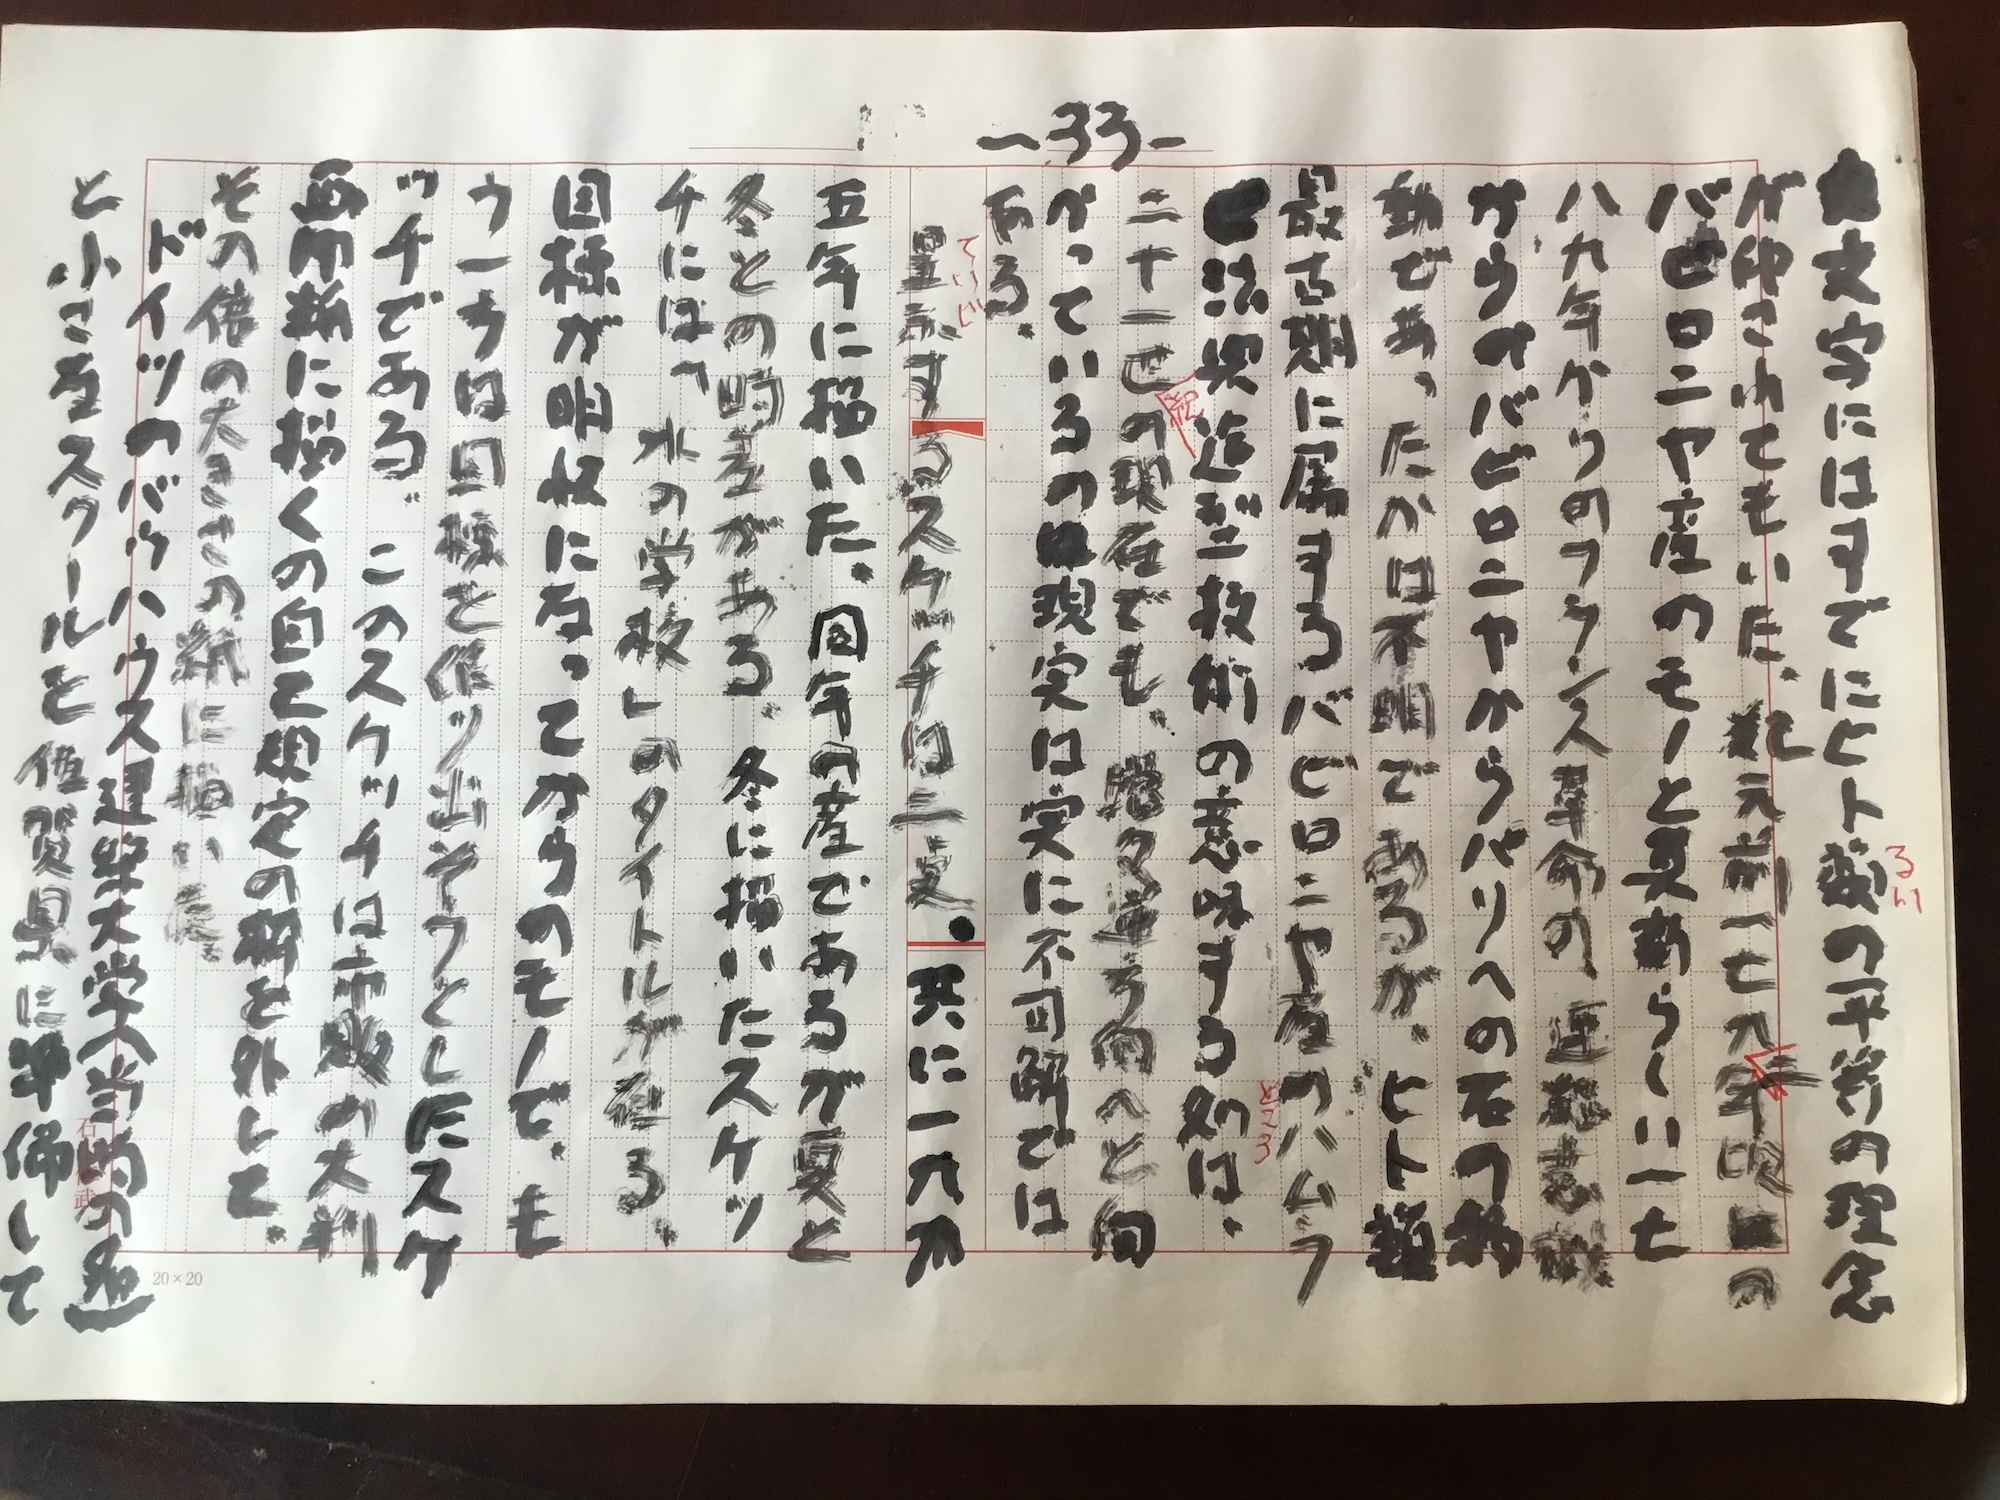 −33−
文字にはすでにヒト類の平等の理念
るい
が印されてもいた。紀元前一七九年頃の
バビロニヤ産のモノと真新らしい一七
八九年からのフランス革命の、
からのバビロニヤからパリへの石の
動であったかは不明であるが、ヒト類
最古期に属するバビロニヤ産のハムラ
ビ法典造型技術の意味する処は、
ところ
二十一世の現在でも、増々遠ち向へと向
かっているのは現実は実に不可解では
有る。
呈示するスケッチは三夏。共に一九九
ていじ
五年に描いた。同年の産であるが夏と
冬との時差がある。冬に描いたスケッ
チには「水の学校」のタイトルが在る。
図様が明快になってからのモノで、も
う一方は図様を作り出そうとしたスケ
ッチである。このスケッチは市販の大判
画用紙に描くの自己規定の枠を外して、
その倍の大きさの紙に描いた。
ドイツのバウハウス建築大学へ当時の
と小さなスクールを佐賀県に準備して
20×20